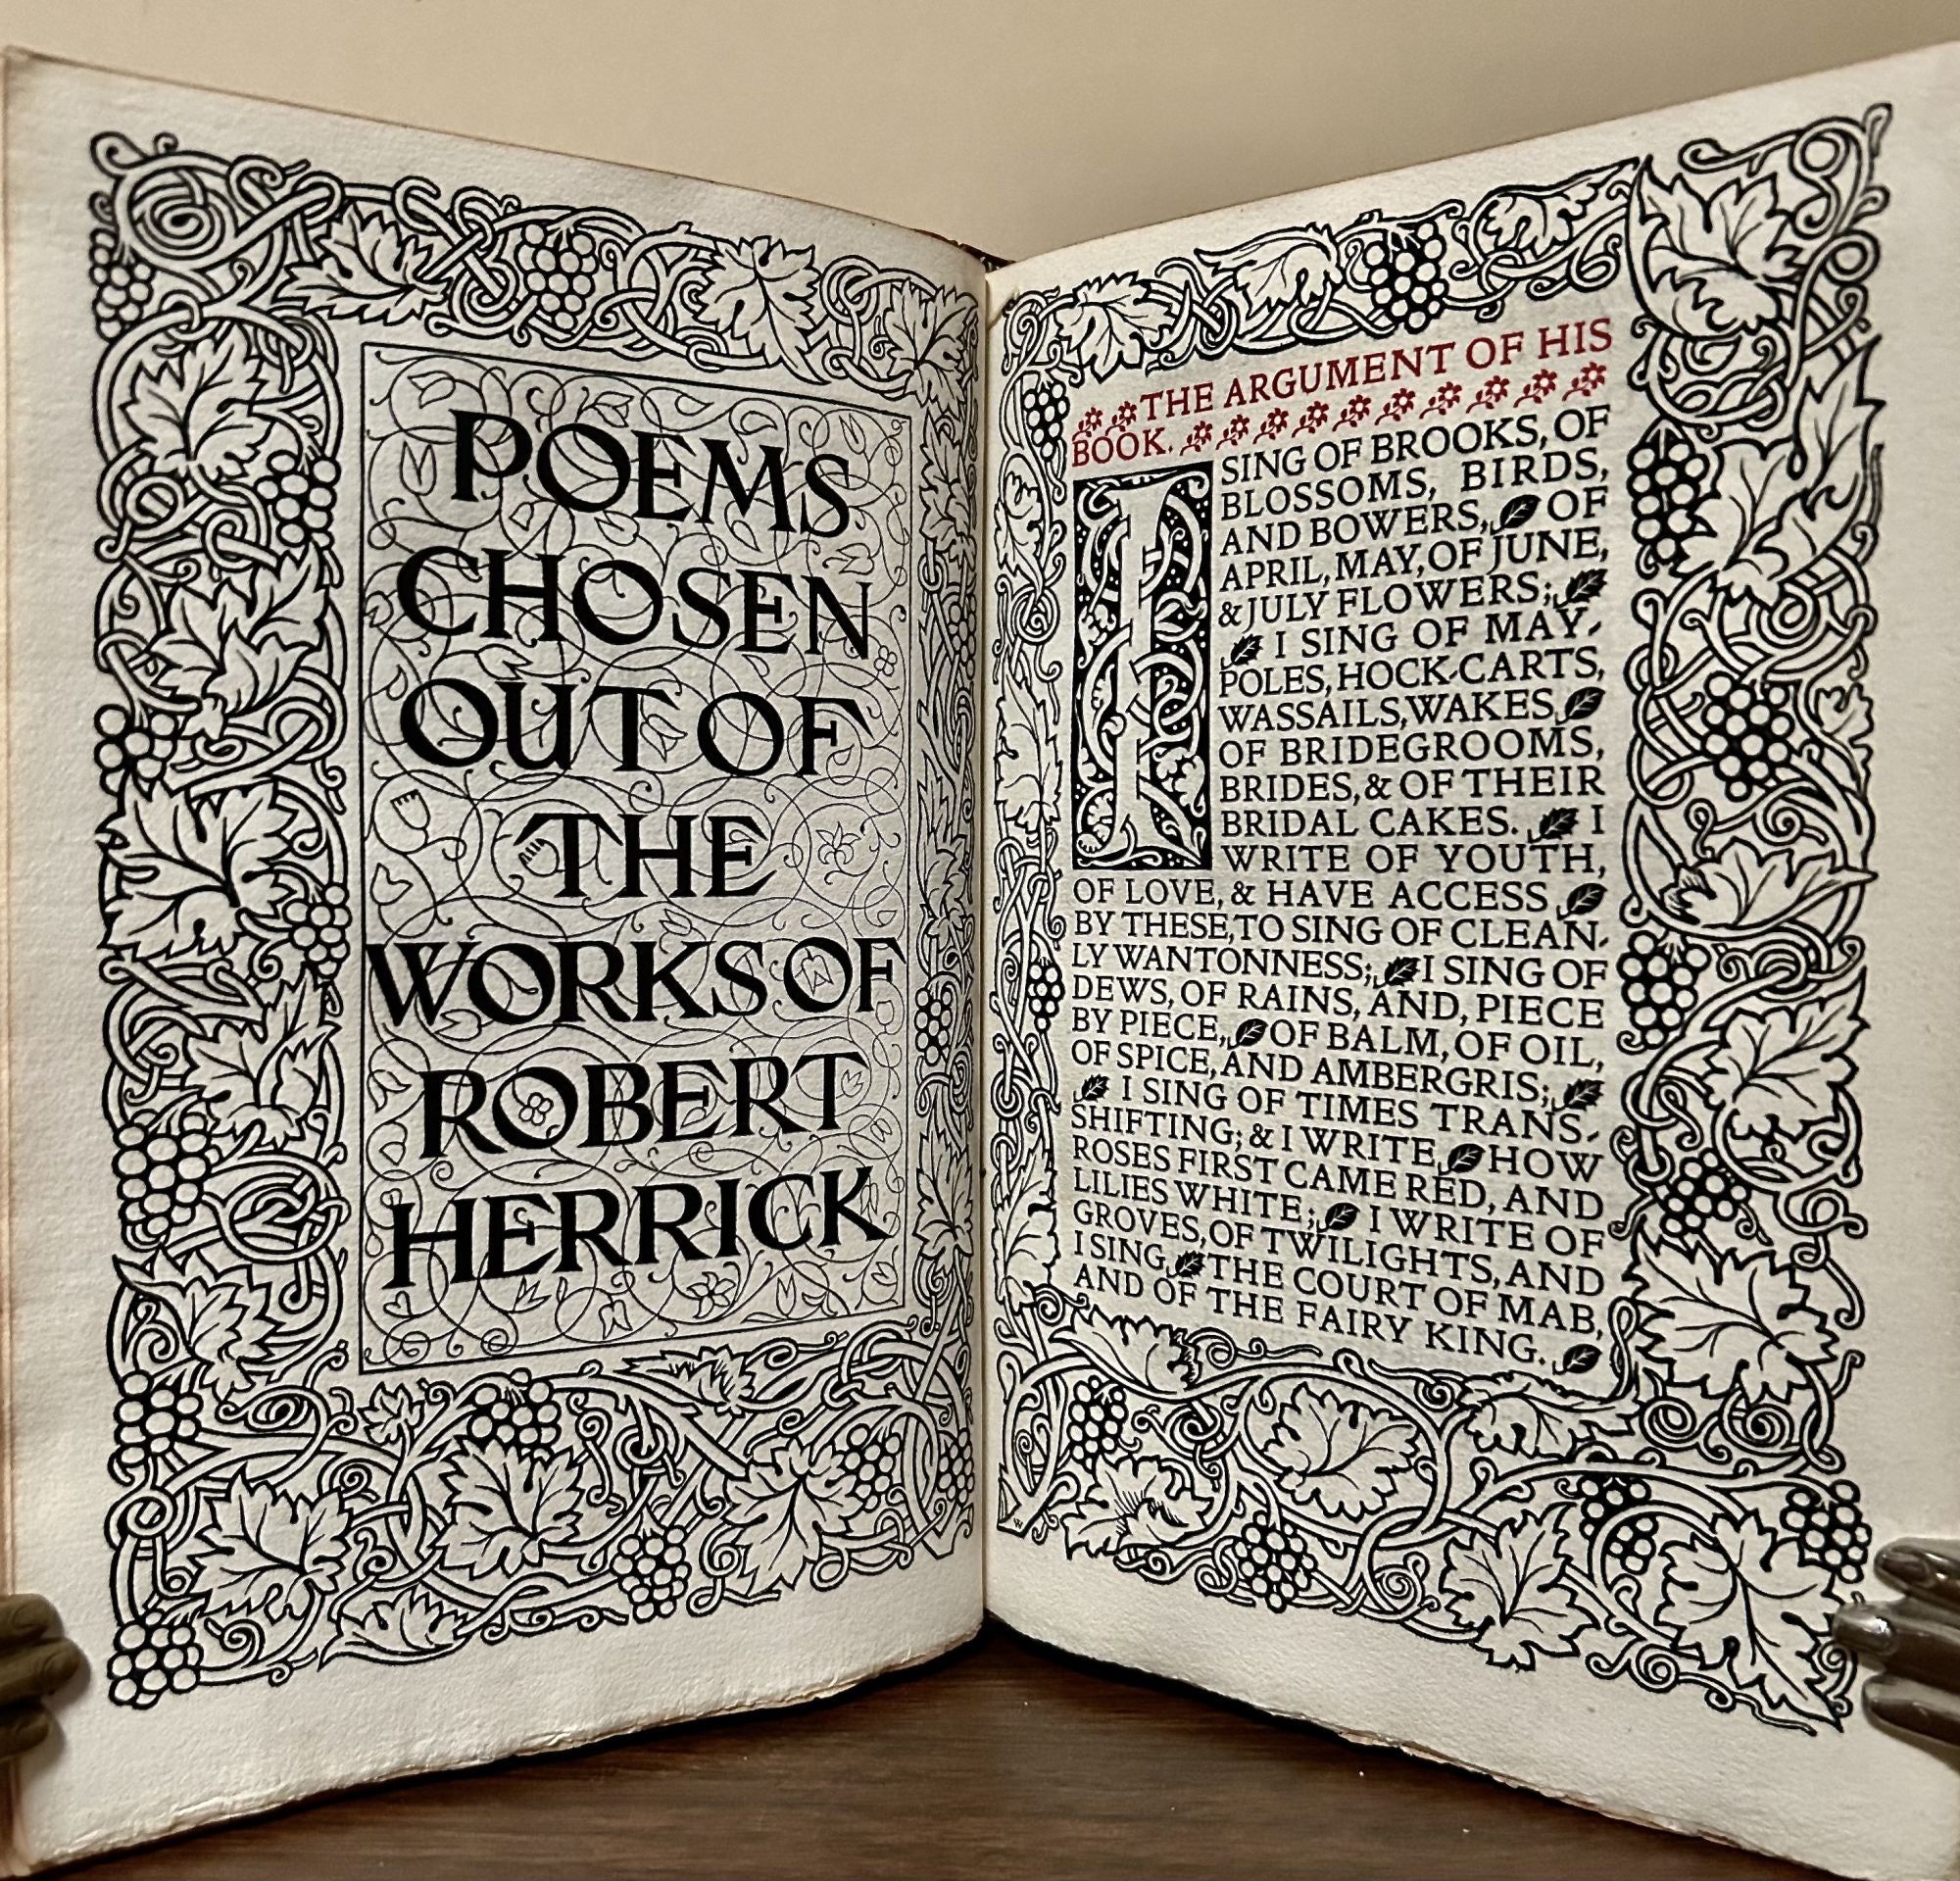 POEMS
CHOSEN
OUT OF
THE
WORKS OF
ROBERT
HERRICK
THE ARGUMENT OF HIS
BOOK.
I SING OF BROOKS, OF
BLOSSOMS, BIRDS,
AND BOWERS, OF
APRIL, MAY, OF JUNE,
& JULY FLOWERS;
I SING OF MAY-
POLES, HOCK-CARTS,
WASSAILS, WAKES,
OF BRIDEGROOMS,
BRIDES, & OF THEIR
BRIDAL CAKES. I
WRITE OF YOUTH,
OF LOVE, & HAVE ACCESS
BY THESE, TO SING OF CLEAN-
LY WANTONNESS; I SING OF
DEWS, OF RAINS, AND, PIECE
BY PIECE, OF BALM, OF OIL,
OF SPICE, AND AMBERGRIS;
I SING OF TIMES TRANS-
SHIFTING; & I WRITE, HOW
ROSES FIRST CAME RED, AND
LILIES WHITE; I WRITE OF
GROVES, OF TWILIGHTS, AND
I SING, THE COURT OF MAB,
AND OF THE FAIRY KING.